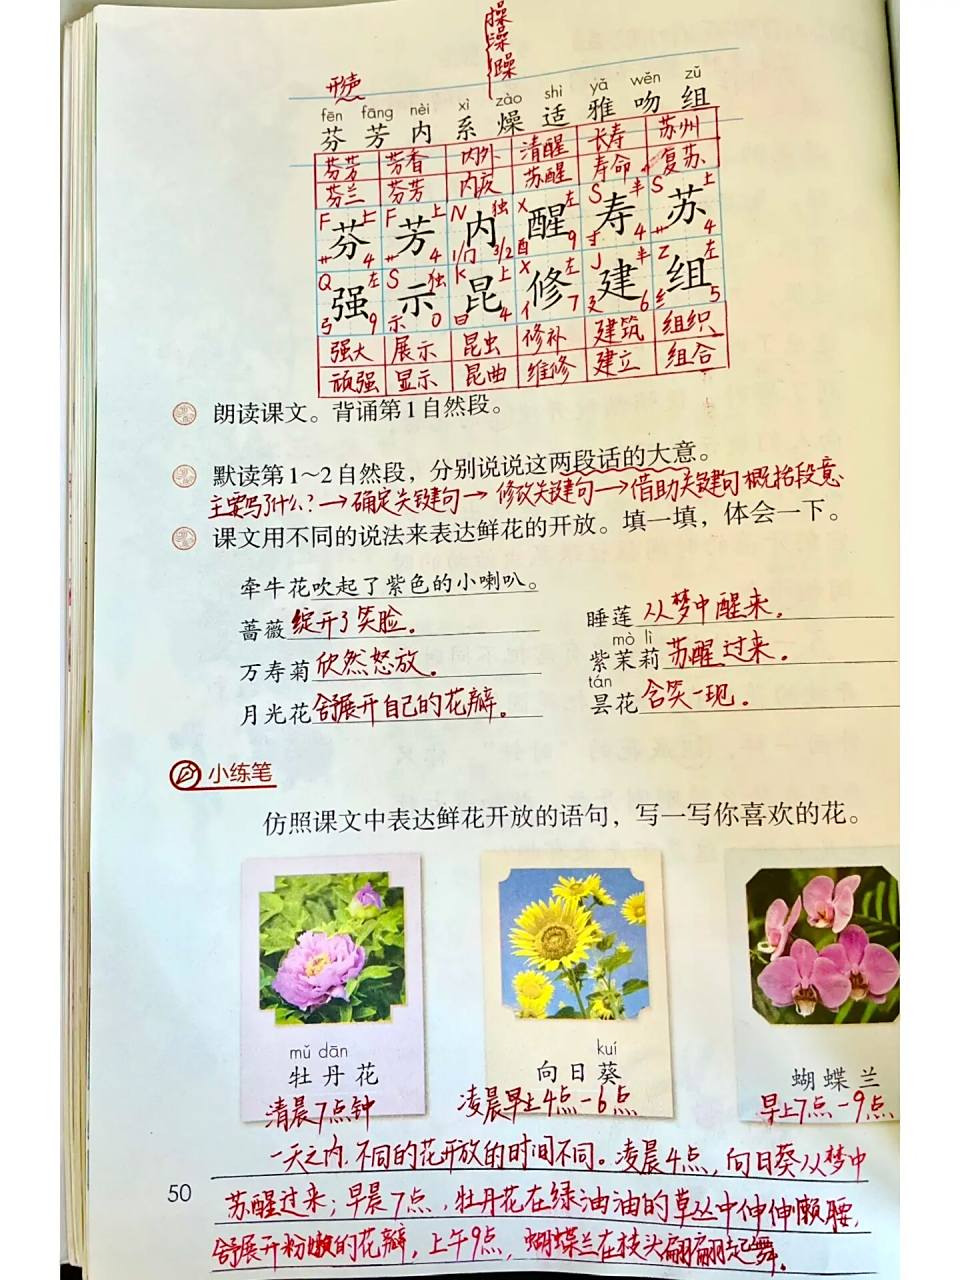 操
澡
躁
形声
fēn fāng nèi xì zào shì yǎ wěn zǔ
芬 芳 内 系 燥 适 雅 吻 组
芬芳 芳香 内外 清醒 长寿 苏州
芬兰 芬芳 内疚 苏醒 寿命 复苏
F 上 F 上 N 独 X 左 S 丰 S 上
芬 芳 内 醒 寿 苏
艹 4 艹 4 1/冂 3/2 酉 9 寸 4 艹 4
Q 左 S 独 K 上 X 左 J 丰 Z 左
强 示 昆 修 建 组
弓 9 示 0 日 4 亻 7 廴 6 纟 5
强大 展示 昆虫 修补 建筑 组织
顽强 显示 昆曲 维修 建立 组合
朗读课文。背诵第1自然段。
默读第1~2自然段，分别说说这两段话的大意。
主要写了什么?→确定关键句→修改关键句→借助关键句概括段意
课文用不同的说法来表达鲜花的开放。填一填，体会一下。
牵牛花吹起了紫色的小喇叭。
蔷薇绽开了笑脸。 睡莲从梦中醒来。
mò lì
万寿菊欣然怒放。 紫茉莉苏醒过来。
tán
月光花舒展开自己的花瓣。 昙花含笑一现。
小练笔
仿照课文中表达鲜花开放的语句，写一写你喜欢的花。
mǔ dān kuí
牡丹花 向日葵 蝴蝶兰
清晨7点钟 凌晨早上4点-6点 早上7点-9点
一天之内，不同的花开放的时间不同。凌晨4点，向日葵从梦中
苏醒过来；早晨7点，牡丹花在绿油油的草丛中伸伸懒腰，
舒展开粉嫩的花瓣，上午9点，蝴蝶兰在枝头翩翩起舞。
50